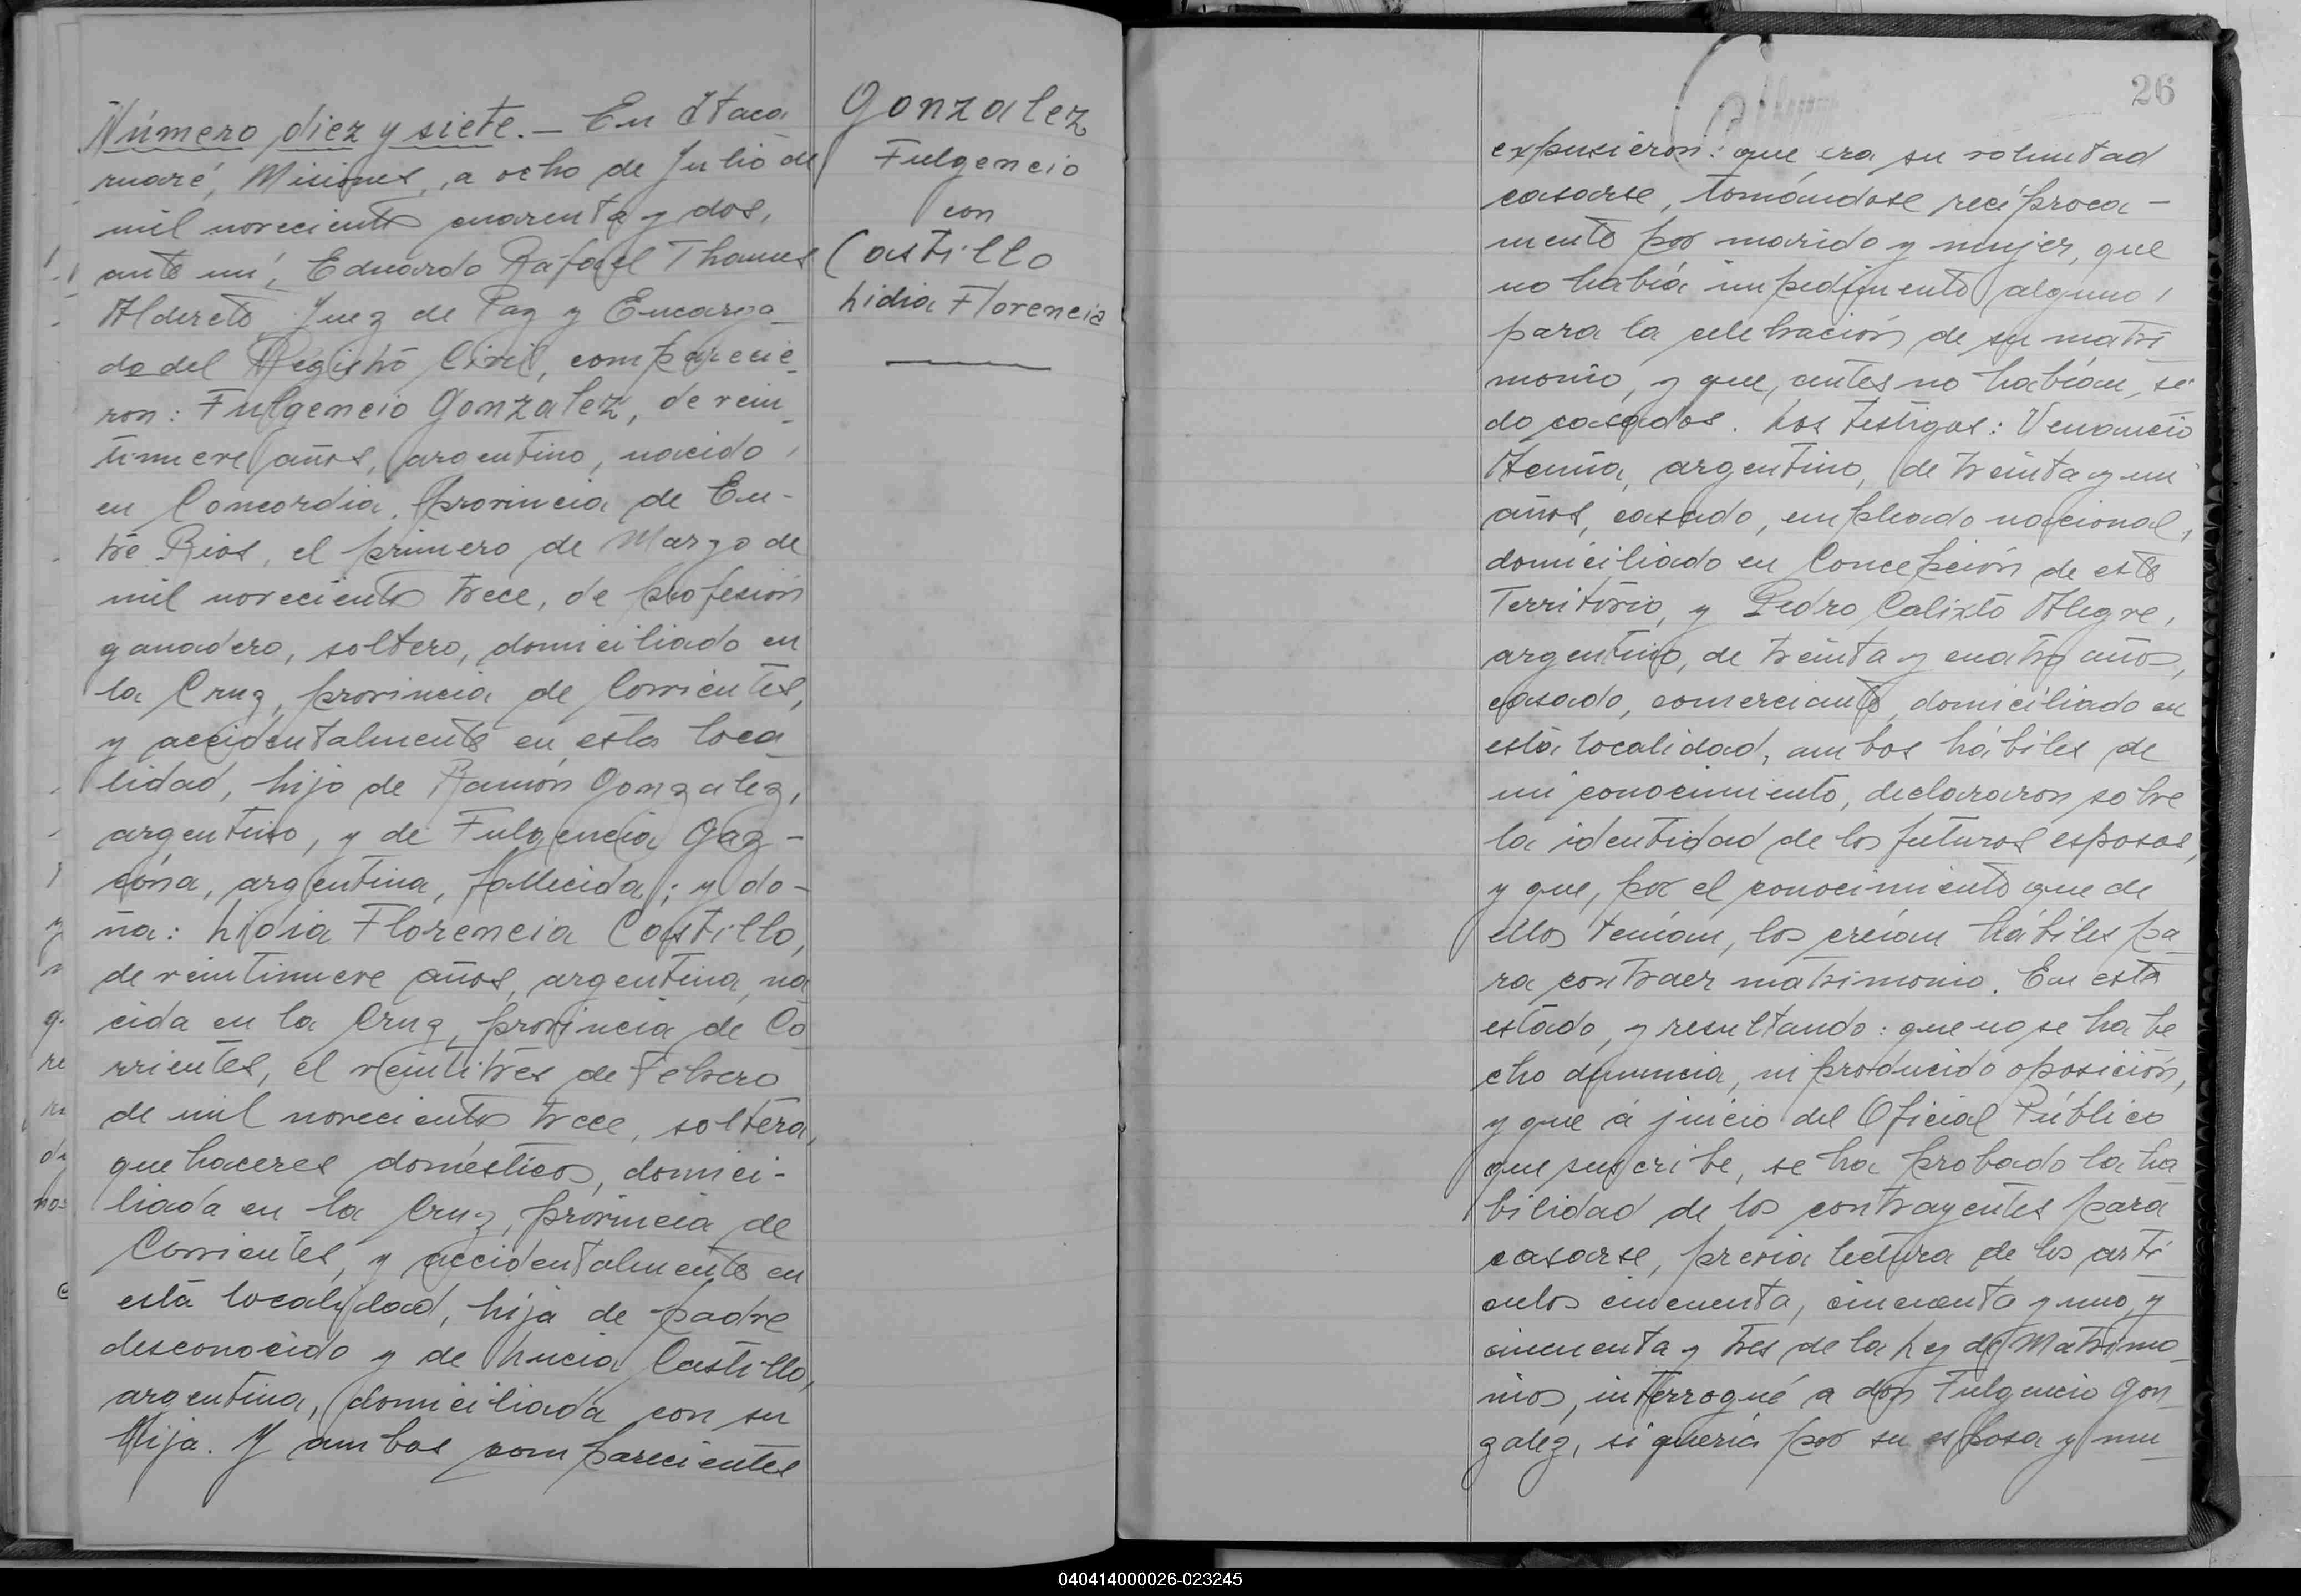 Número diez y siete.— En Itaca
ruaré, Misiones, a ocho de Julio de
mil novecientos cuarenta y dos,
ante mí, Eduardo Rafael Thames
Alderete, Juez de Paz y Encarga
do del Registro Civil, comparecie
ron: Fulgencio Gonzalez, de vein
tinueve años, argentino, nacido
en Concordia, provincia de En-
tre Rios, el primero de Marzo de
mil novecientos trece, de profesión
ganadero, soltero, domiciliado en
la Cruz, provincia de Corrientes,
y accidentalmente en esta loca
lidad, hijo de Ramón Gonzalez,
argentino, y de Fulgencia Gaz-
cóna, argentina, fallecida; y do-
ña: Lidia Florencia Castillo,
de veintinueve años, argentina, na
cida en la Cruz, provincia de Co
rrientes, el veintitrés de Febrero
de mil novecientos trece, soltera,
quehaceres domésticos, domici-
liada en la Cruz, provincia de
Corrientes, y accidentalmente en
esta localidad, hija de padre
desconocido y de Lucia Castillo,
argentina, domiciliada con su
hija. Y ambos comparecientes
Gonzalez
Fulgencio
con
Castillo
Lidia Florencia
26
expusieron: que era su voluntad
casarse, tomándose recíproca-
mente por marido y mujer, que
no había impedimento alguno
para la celebración de su matri
monio, y que, antes no habían, si
do casados. Los testigos: Venancio
argentino, de treinta y un
años, casado, empleado nacional,
domiciliado en Concepción de este
Territorio, y Pedro Calixto Alegre,
argentino, de treinta y cuatro años,
casado, comerciante, domiciliado en
esta localidad, ambos hábiles de
mi conocimiento, declararon sobre
la identidad de los futuros esposos,
y que, por el conocimiento que de
ellos tenían, los creían hábiles pa
ra contraer matrimonio. En este
estado, y resultando: que no se ha he
cho denuncia, ni producido oposición,
y que á juicio del Oficial Público
que suscribe, se ha probado la ha
bilidad de los contrayentes para
casarse, previa lectura de los artí
culos cincuenta, cincuenta y uno, y
cincuenta y tres de la Ley de Matrimo
nios, interrogué a don Fulgencio Gon
zalez, si quería por su esposa y mu
040414000026-023245